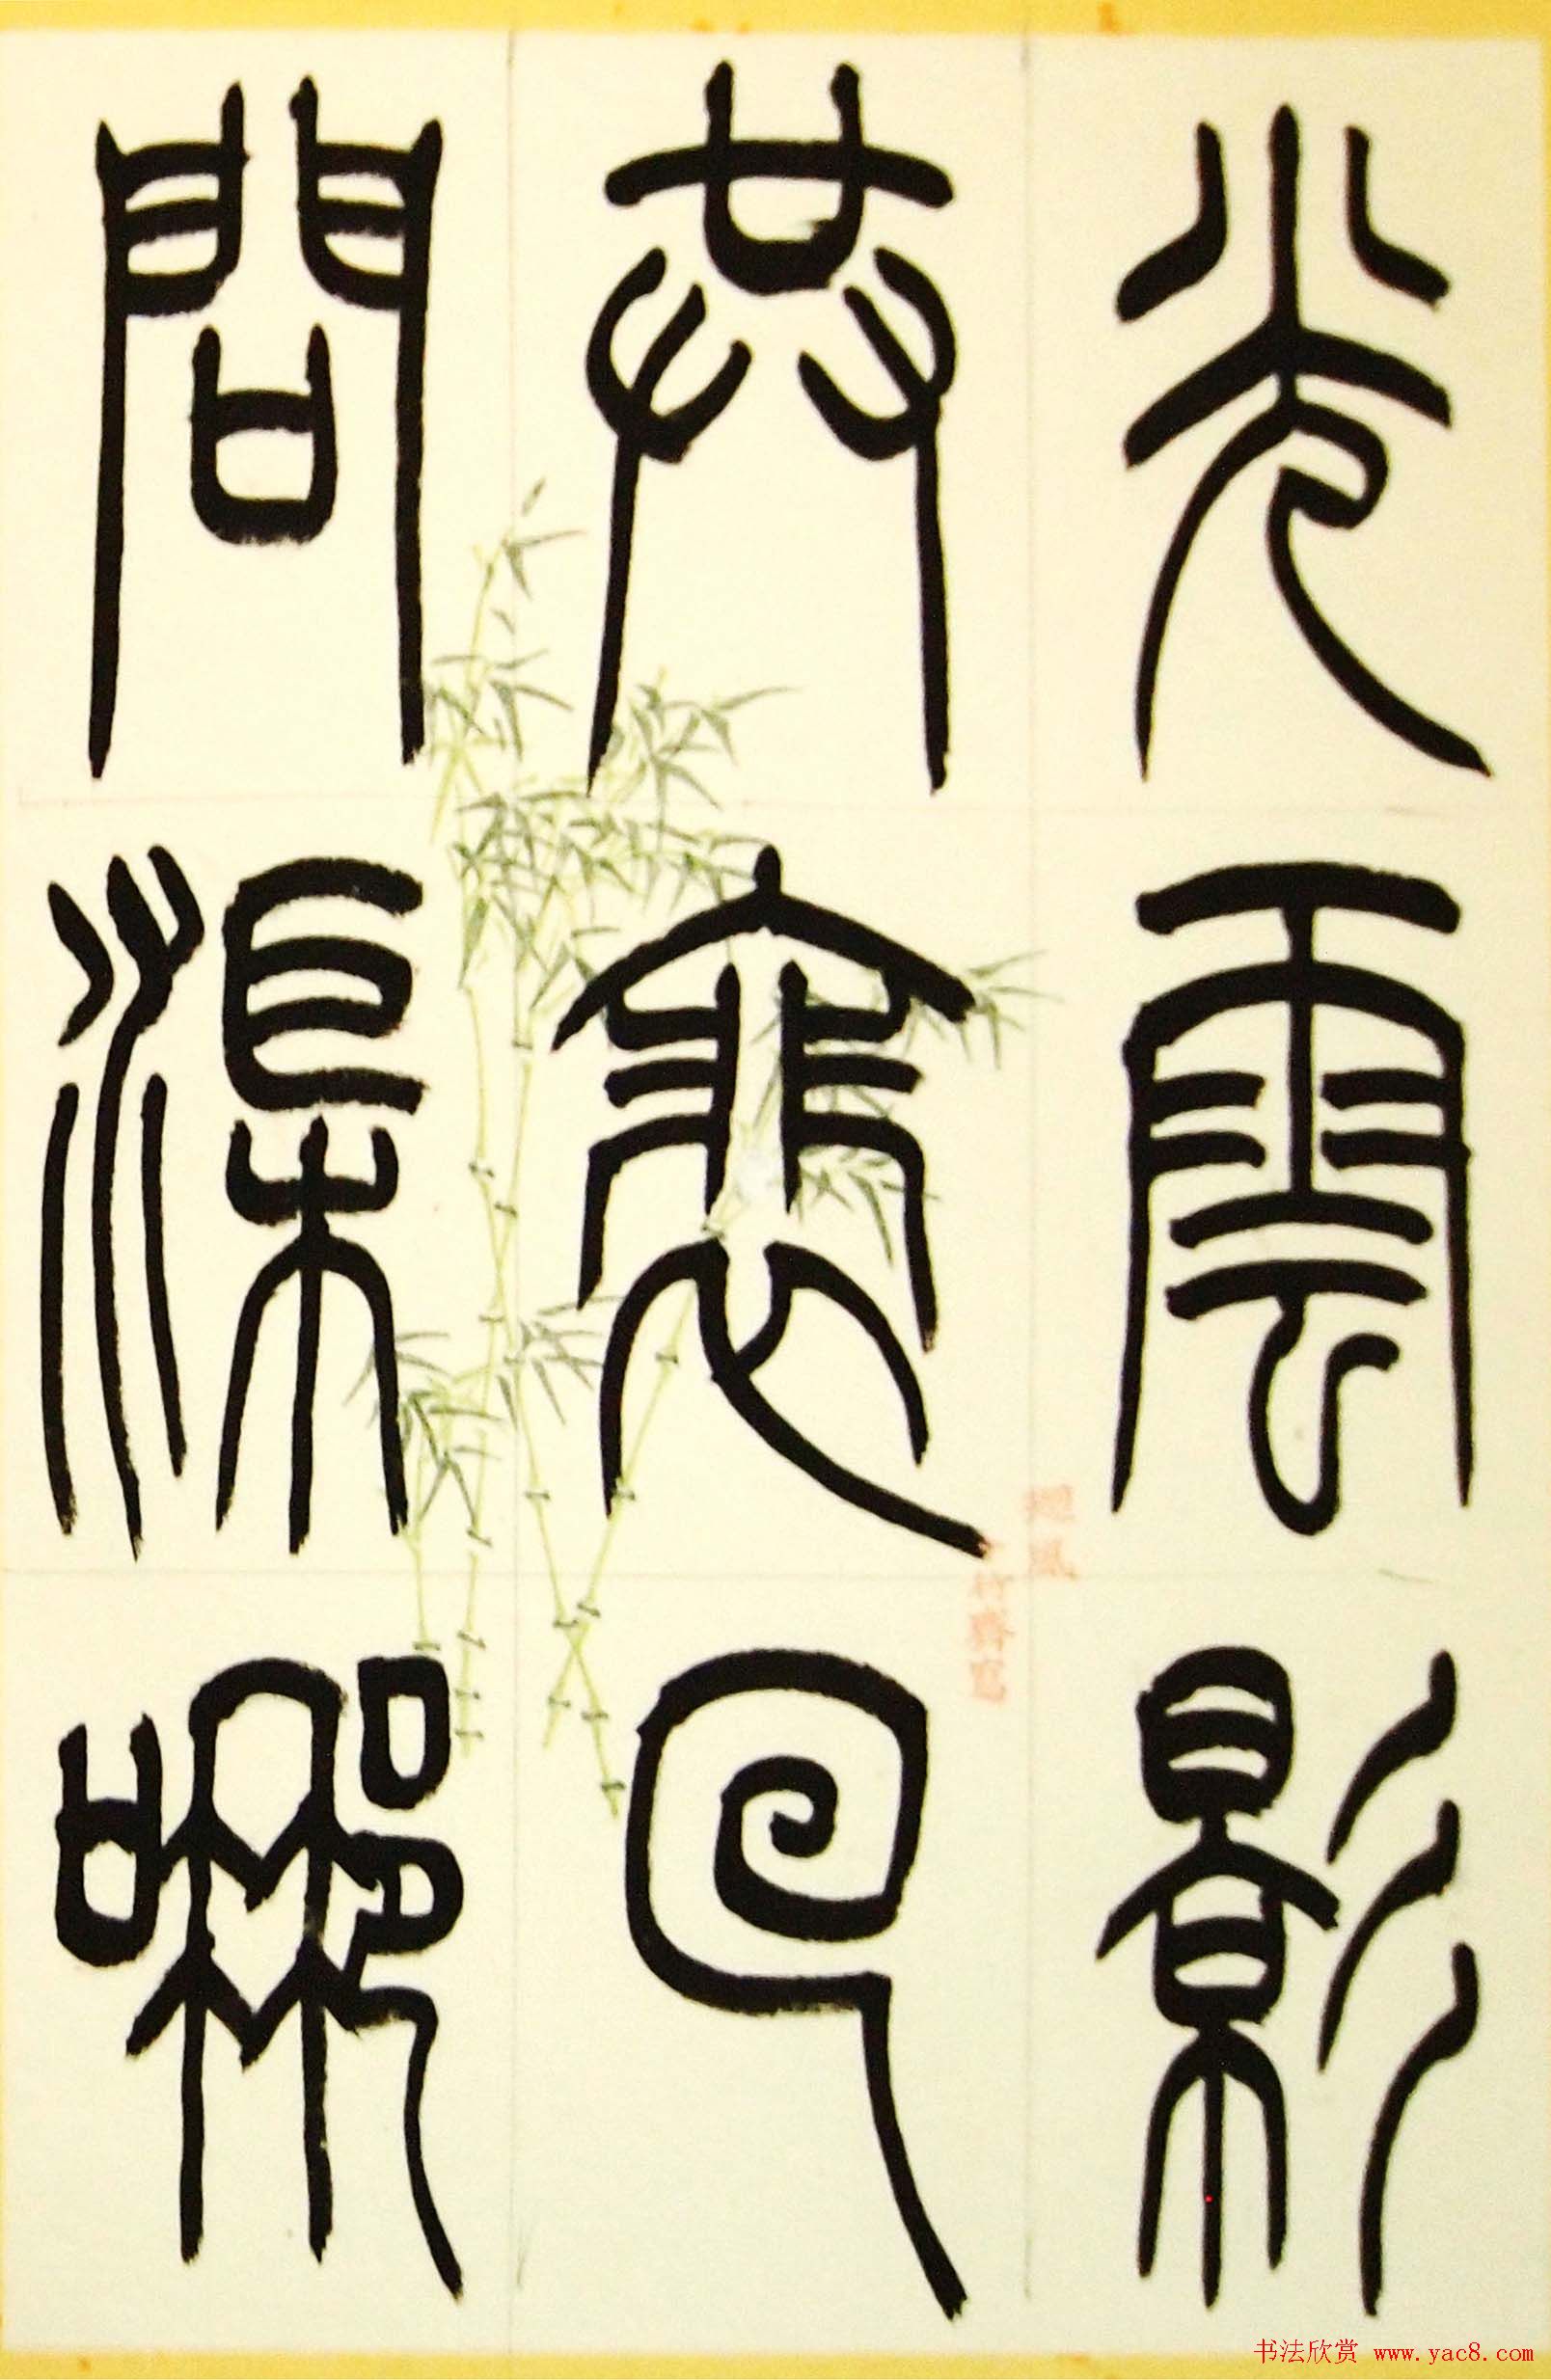 光雲影
共裵回
問渠那
书法欣赏 www.yac8.com